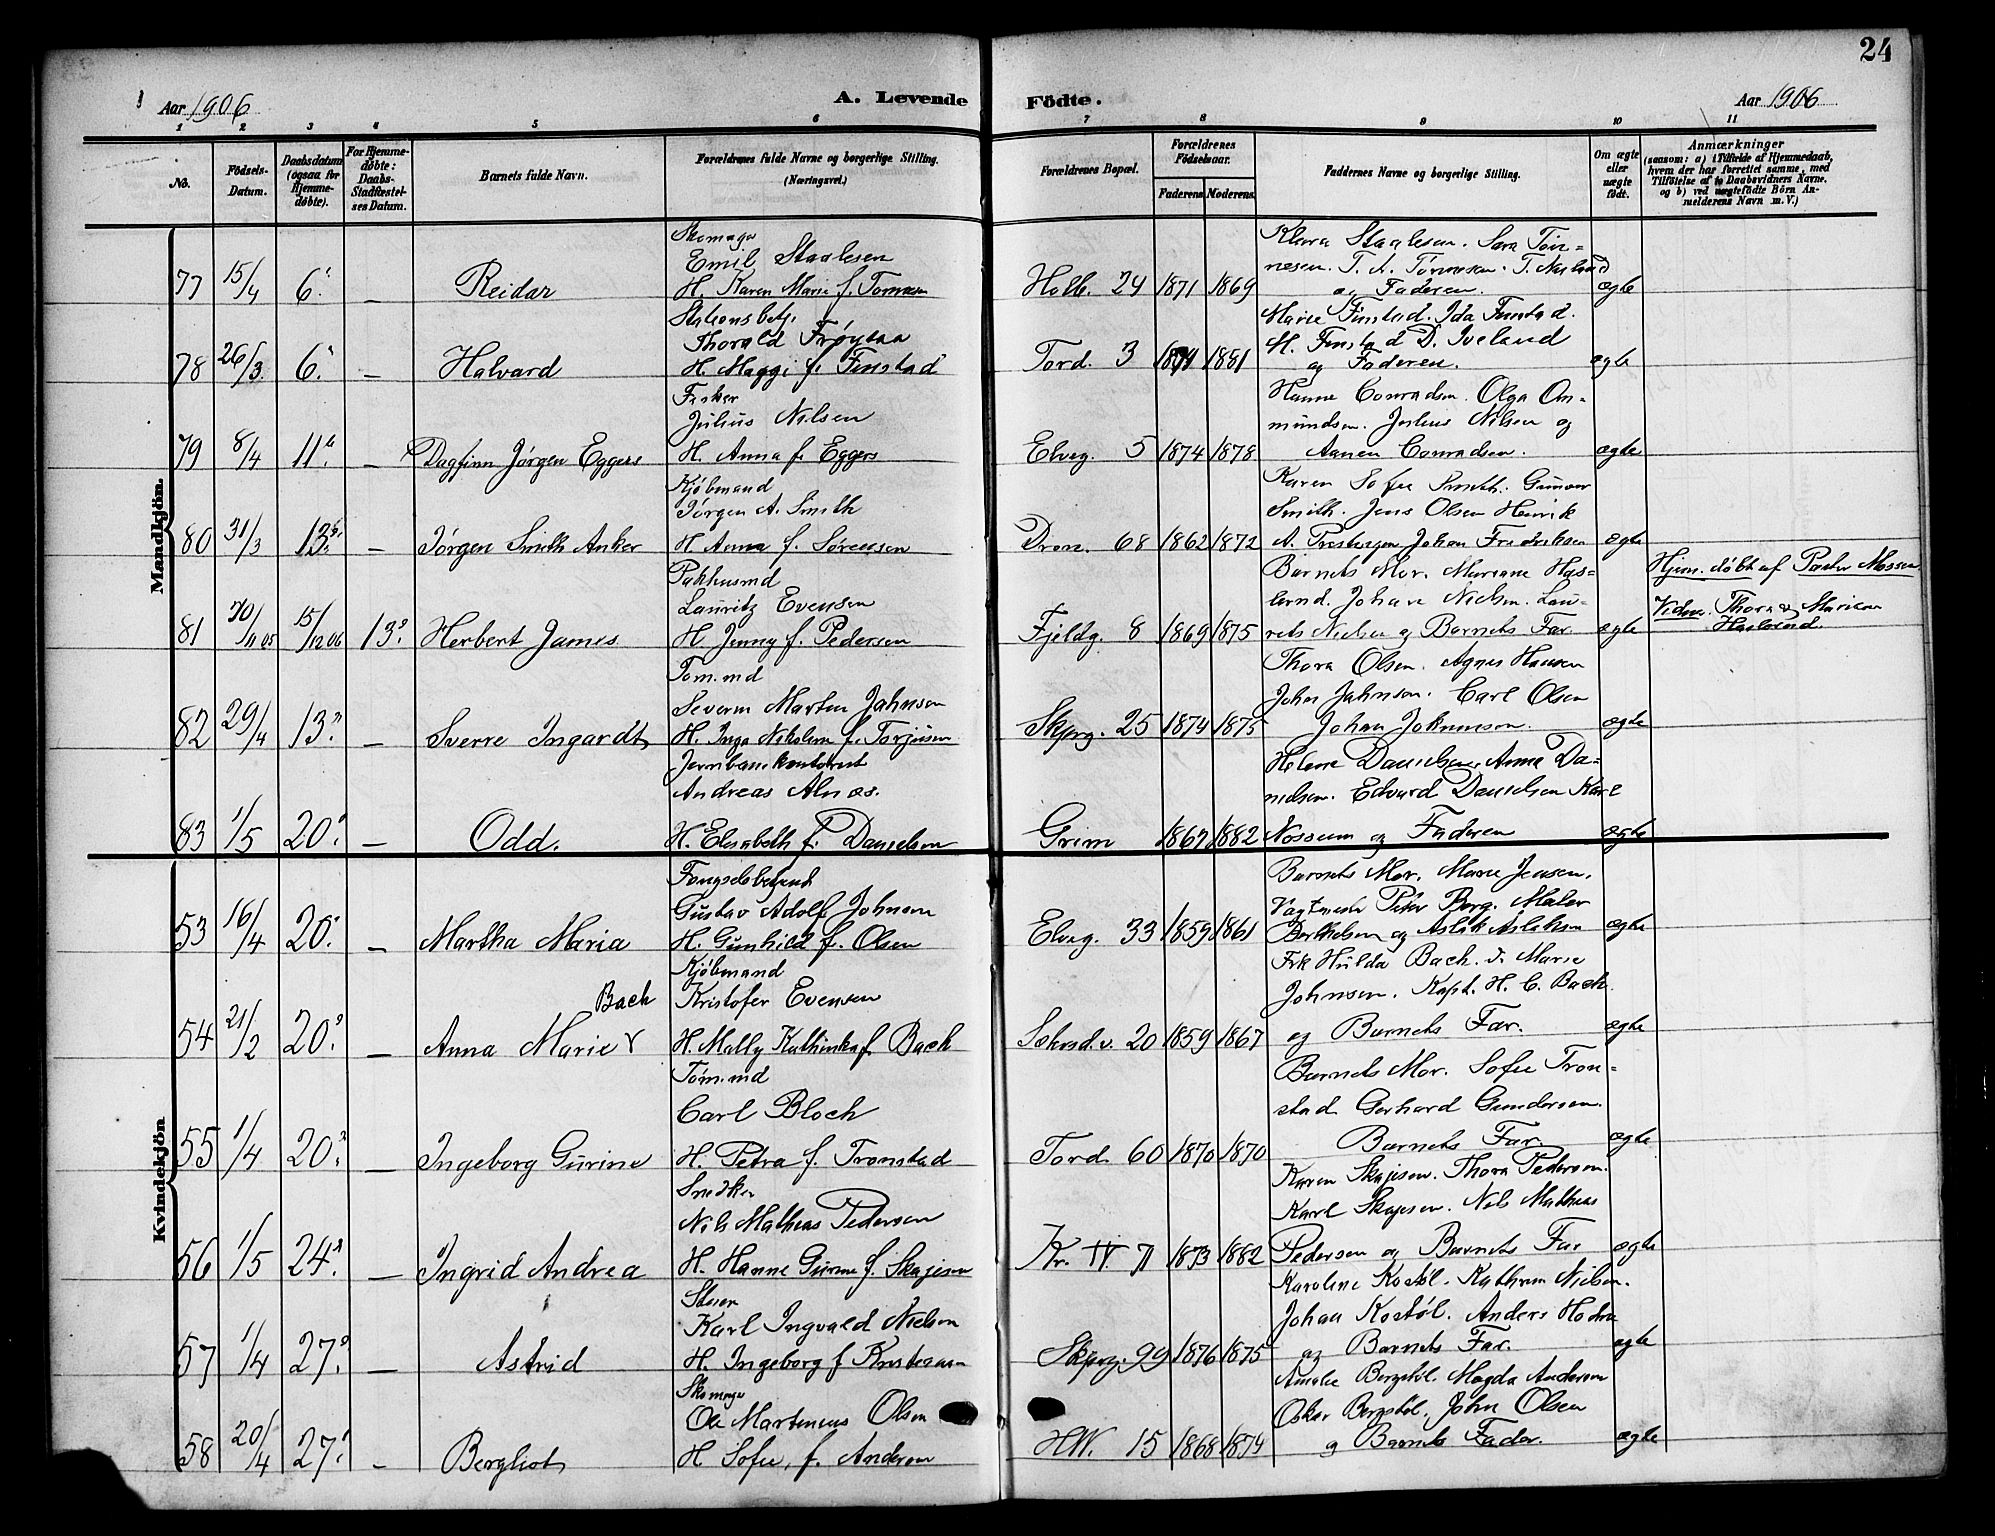 24
Aar 1906
A. Levende Födte.
Aar 1906
1 2 3 4 5 6 7 8 9 10 11
No.
Födsels-Datum.
Daabsdatum (ogsaa for Hjemme-döbte).
For Hjemme-döbte: Daabs-Stadfæstel-ses Datum.
Barnets fulde Navn.
Forældrenes fulde Navne og borgerlige Stilling.
(Næringsvei.)
Forældrenes Bopæl.
Forældrenes Födselsaar.
Faderens. Moderens.
Faddernes Navne og borgerlige Stilling.
Om ægte eller uægte födt.
Anmærkninger
(saasom: a) i Tilfælde af Hjemmedaab,
hvem der har forrettet samme, med
Tilföielse af to Daabsvidners Navne,
og b) ved uægtefödte Börn An-
melderens Navn m. V.)
Mandkjön.
Skomager
Emil Staalesen
77 15/4 6. — Reidar H. Karen Marie f. Tønnesen
Holb. 24 1871 1869
Klara Staalesen. Sara Tøn=
nesen. T. A. Tønnesen.
og Faderen. ægte
Stationsbetj.
Thorald
78 26/3. 6. — Halvard H. Maggi f. Finstad
Tord. 3 1881
Marie Finstad. Ida Finstad.
M. Finstad D. Iveland
og Faderen. ægte
Fisker
Julius Nilsen
79 8/4 11. — Dagfinn Jørgen Eggers H. Anna f. Eggers
Elveg. 5 1874 1878
Hanne Conradsen. Olga Om-
mundsen. Julius Nilsen og
Aanen Conradsen. ægte
Kjøbmand
Jørgen A. Smith
80 31/3 13. — Jørgen Smith Anker H. Anna f. Sørensen
Dron. 68 1862 1872
Karen Sofie Smith. Gunvor
Smith. Jens Olsen Henrik
A. Johan Fredriksen ægte
Pakhusmd
Lauritz Evensen
81 30/11 05 15/12 06 13. Herbert James. H. Jenny f. Pedersen
Fjeldg. 8 1869 1875
Barnets Mor. Mariane Has-
lund. Johan Nielsen. Lau-
rits Nielsen og Barnets Far. ægte
Hjem. døbt af Pastor
Vidner. Thora
Haslund.
Tøm.md
Severin Martin Jahnsen
82 29/4 13. — Sverre Ingardt H. Inga Nikoline f. Torjusen
Skperg. 25 1874 1875
Thora Olsen. Agnes Hansen
John Jahnsen. Carl Olsen
Johan Johnnson. ægte
Jernbanekontorist
Andreas Alnæs.
83 1/5 20. — Odd. H. Elisabeth f. Danielsen
Grim 1867 1882
Helene Danielsen Anna Da=
nielsen. Edvard Danielsen Karl
Nossum og Faderen ægte
Kvindekjön
Fængselsbetjent
Gustav Adolf Johnsen
53 16/4 20. — Martha Maria H. Gunhild f. Olsen
Elveg. 33 1859 1861
Barnets Mor. Marie Jensen.
Vagtmester Peter Berg. Maler
Berthelsen og Aslak Aslaksen ægte
Kjøbmand
Bach Kristofer Evensen
54 21/2 20. — Anna Marie H. Mally Kathinka f. Bach
20 1859 1867
Frk Hulda Bach. Marie
Johnsen. Kapt. H. C. Bach.
og Barnets Far. ægte
Tøm.md
Carl Bloch
55 1/4 20. — Ingeborg Gurine H. Petra f. Tronstad
Tord. 60 1870 1870
Barnets Mor. Sofie Tron=
stad Gerhard Gundersen.
Barnets Far. ægte
Snedker
Nils Mathias Pedersen
56 1/5 24. — Ingrid Andrea H. Hanne Gurine f. Skajesen
Kr. IV. 71 1873 1882
Karen Skajesen. Thora Pedersen.
Karl Skajesen. Nils Mathias
Pedersen og Barnets Far ægte
Karl Ingvald Nielsen
57 1/4 27. — Astrid H. Ingeborg f Kristensen
Skperg. 99 1876 1875
Karoline Kostøl. Kathrin Nielsen.
Johan Kostøl. Anders
og Barnets Far. ægte
Skomager
Ole Martinius Olsen
58 20/4 27. — Bergliot H Sofie, f. Andersen
HW. 15 1868 1874
Amalie Bergstøl. Magda Andersen
Oskar Bergstøl, John Olsen
og Barnets Fader. ægte